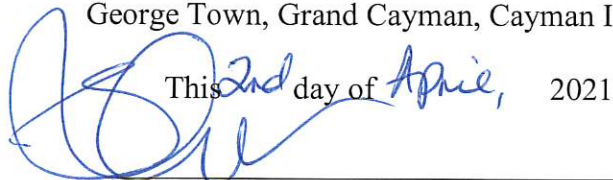 George Town, Grand Cayman, Cayman I
This 2nd day of April, 2021